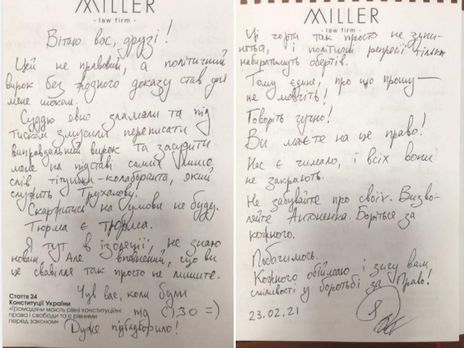 MILLER
- law firm -
Вітаю вас, друзі!
Цей не правовий, а політичний
вирок без жодного доказу став для
мене шоком.
Суддю явно зламали та під
тиском змусили переписати
виправдальний вирок та засудити
мене на підставі самих лише
слів тітушки-колаборанта, який
служить Труханову.
Скаржитись на умови не буду.
Тюрма є тюрма.
Я тут в ізоляції, не знаю
новин, але впевнений, що ви
це свавілля так просто не лишите.
Чув вас, коли були
під СІЗО =)
Дуже підбадьорило!
Стаття 24
Конституції України
«Громадяни мають рівні конституційні
права і свободи та є рівними
перед законом»
MILLER
- law firm -
Ці чорти так просто не зупи-
няться, і політичні репресії тільки
набиратимуть обертів.
Тому єдине, про що прошу —
не мовчіть!
Говоріть гучно!
Ви маєте на це право!
Нас є чимало, і всіх вони
не закриють.
Не забувайте про своїх. Визво-
ляйте Антоненка. Боріться за
кожного.
Побачимось.
Кожного обіймаю і зичу вам
сміливості у боротьбі за Право!
23.02.21